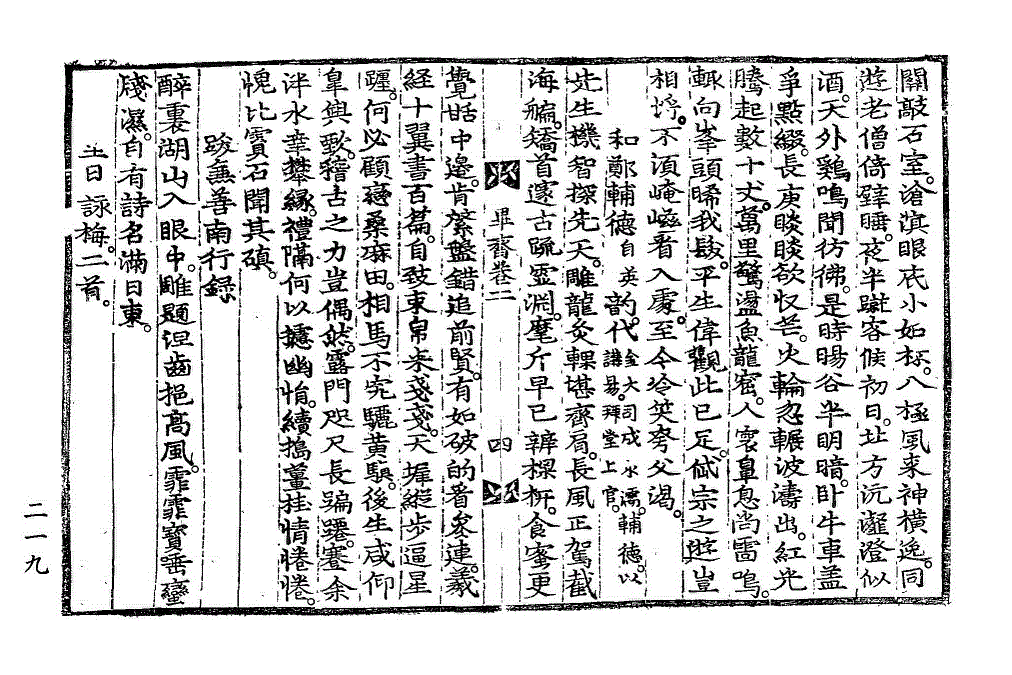 關敲石室滄溟眼底小如杯八極風來神橫逸同
遊老僧倚壁睡夜半蹴客候初日北方沉瀣澄似
酒天外鷄鳴聞彷彿是時暘谷半明暗卧牛車盖
爭點綴長庚睒睒欲收芒火輪忽輾波濤出紅光
騰起數十丈萬里驚盪魚龍窟人寰鼻息尚雷鳴
輒向峯頭晞我髮平生偉觀此已足岱宗之遊豈
相埒不須崦嵫看入處至今冷笑夸父渴
和鄭輔德自英韵代金大司成永濡輔德以講易拜堂上官
先生機智探先天雕龍炙輠堪齊肩長風正駕截
海艑矯首邃古疏靈淵麾斤早已辨樑桷食蜜更
畢齋卷二
四
覺甜中邊肯綮盤錯追前賢有如破的着矣連羲
経十翼書百篇自致束帛來戔戔天墀縱步逼星
躔何必顧戀桑麻田相馬不究驪黃騵後生咸仰
皐與歌稽古之力豈偶然露門咫尺長蹁躚蹇余
泮水幸攀緣禮隔何以攄幽悁續搗薑桂情惓惓
愧比寶石聞其磌
跋無善南行錄
醉裏湖山入眼中雕題涅齒挹高風霏霏寶唾蠻
牋濕自有詩名滿日東
王日詠梅二首
二一九